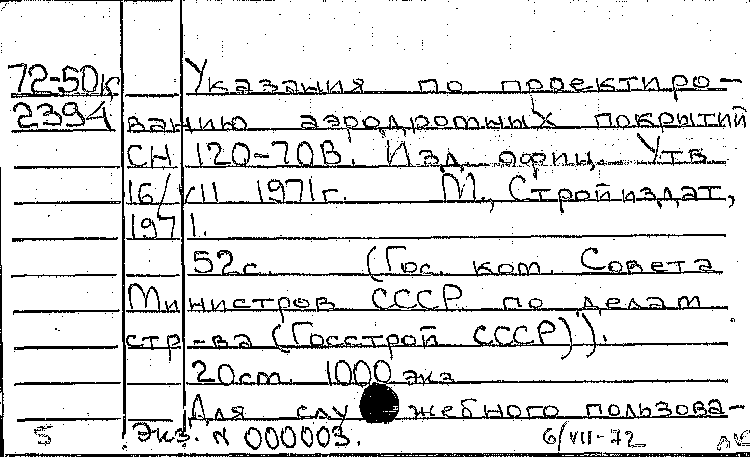 72-50к Указания по проектиро-
2394 ванию аэродромных покрытий
СН 120-70В. Изд. офиц. Утв
16/VII 1971г. М., Стройиздат,
1971.
52с. (Гос. ком. Совета
Министров СССР по делам
стр-ва (Госстрой СССР)).
20см. 1000 экз
Для служебного пользова-
5 Экз. N 000003. 6/VII-72